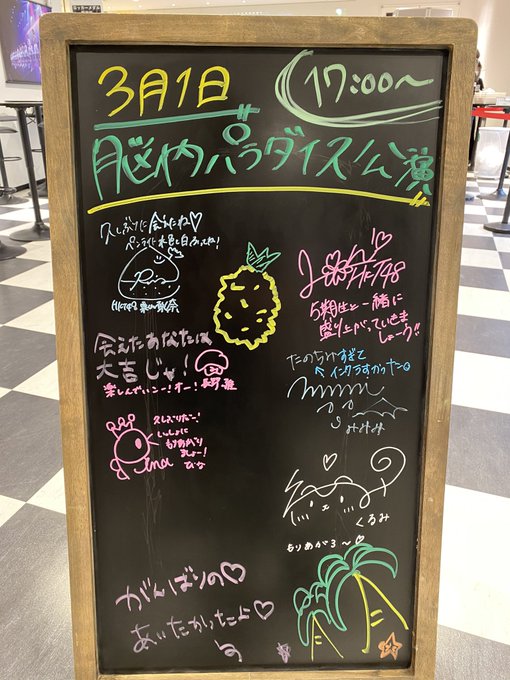 3月1日
17:00~
脳内パラダイス公演
久しぶりに会えたね♡
Rin
HKT48
会えたあなたは
大吉じゃ!
楽しんでいこー!オー!
HKT48
5期生と一緒に
盛り上がっていきま
しょーう!!
たのちみすぎて
←インクうすかった
mimi
みみみ
久しぶりだー!
いっしょに
もりあがり
ましょー!
ひな
Hina
くるみ
もりあがろ~♡
がんばりの♡
あいたかいたよ♡